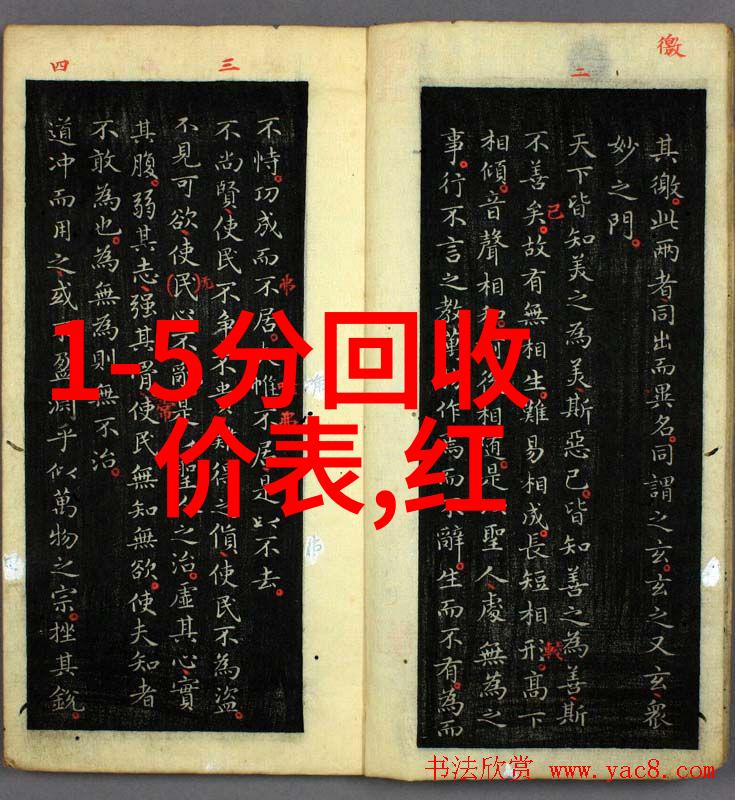 徼
二
其徼此两者同出而異名同謂之玄玄之又玄衆
妙之門
天下皆知美之為美斯惡已皆知善之為善斯
不善矣故有無相生難易相成長短相形高下
相傾音聲相
相隨是
聖人處無為之
事行不言之教萬
作焉而
辭生而不有為而
已
較
三
四
不恃功成而不居
惟不居是以不去
不尚賢使民不争不貴難得之貨使民不為盜
不見可欲使(民)心不亂是
聖人之治虛其心實
其腹弱其志强其骨使民無知無欲使夫知者
不敢為也為無為則無不治
道冲而用之或不盈淵乎似萬物之宗挫其銳
弗
无
常
弗
1-5分回收
价表,红
书法欣赏 www.yac8.com